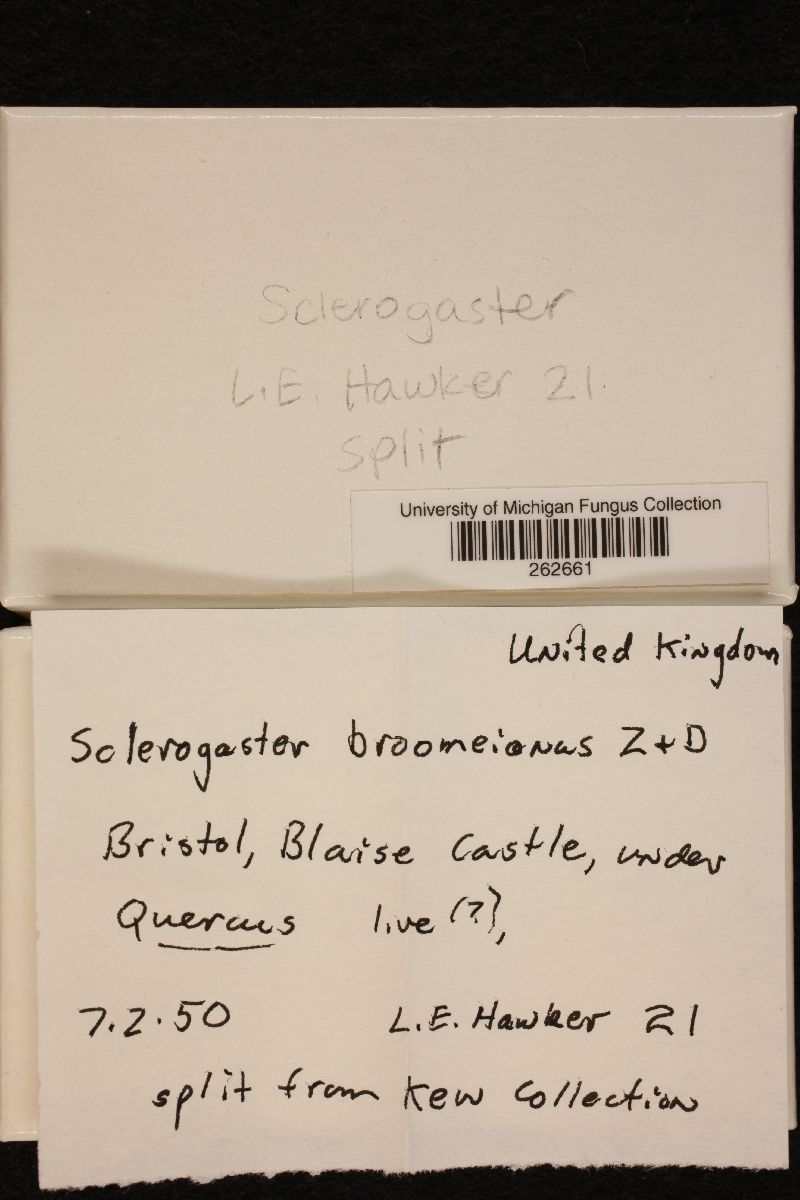 Sclerogaster
L.E. Hawker 21
split
University of Michigan Fungus Collection
262661
United Kingdom
Sclerogaster broomeianus Z+D
Bristol, Blaise Castle, under
Quercus live (?),
7.2.50 L.E. Hawker 21
split from Kew Collection